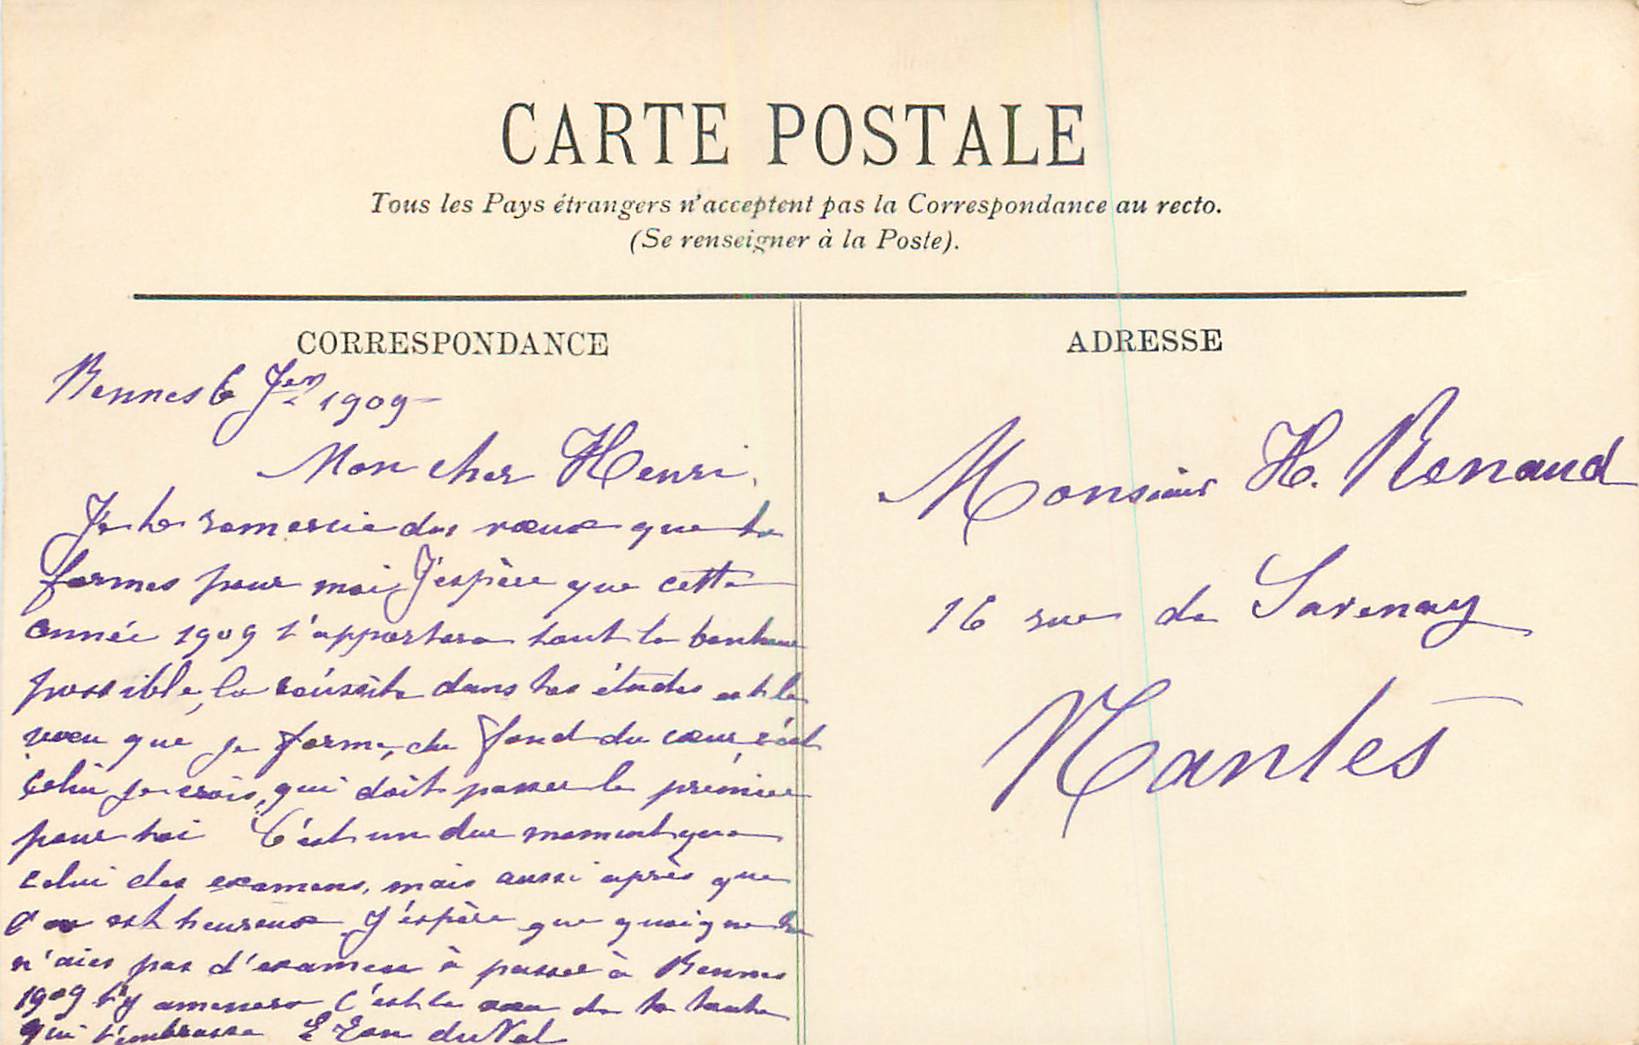 CARTE POSTALE
Tous les Pays étrangers n'acceptent pas la Correspondance au recto.
(Se renseigner à la Poste).
CORRESPONDANCE
Rennes 6 Jer 1909
Mon cher Henri,
Je te remercie des vœux que tu
formes pour moi, J'espère que cette
année 1909 t'apportera tout le bonheur
possible, la réussite dans tes études est le
vœu que je forme, du fond du cœur, c'est
celui je crois, qui doit passer le premier
pour toi C'est un dur moment que
celui des examens, mais aussi après que
l'on est heureux J'espère que quoique tu
n'aies pas d'examen à passer à Rennes
1909 t'y amenera C'est le vœu de ta tante
qui t'embrasse du Val
ADRESSE
Monsieur H. Renaud
16 rue de Savenay
Nantes